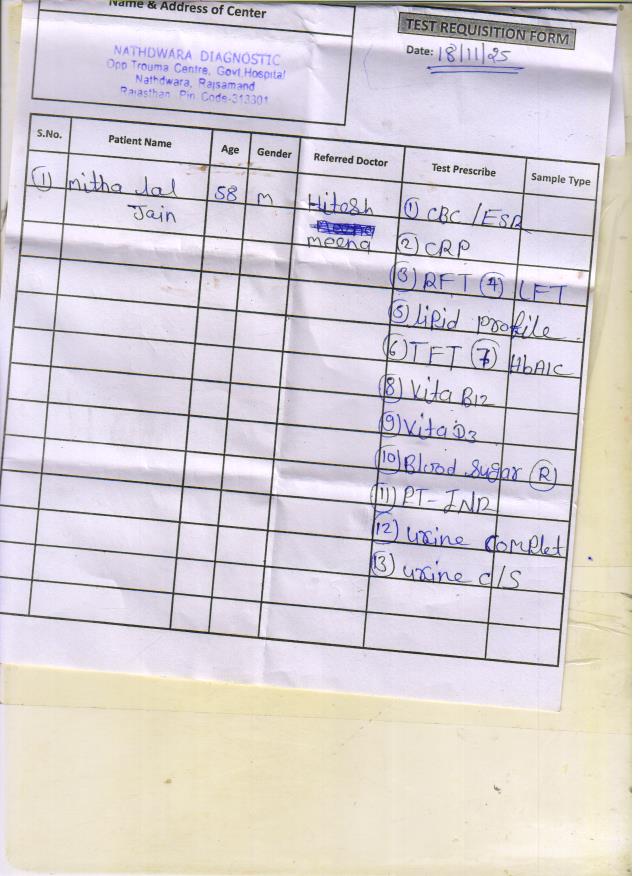 Name & Address of Center
TEST REQUISITION FORM
Date: 18/11/25
NATHDWARA DIAGNOSTIC
Opp Trouma Centre, Govt.Hospital
Nathdwara, Rajsamand
Rajasthan Pin Code-313301
S.No. Patient Name Age Gender Referred Doctor Test Prescribe Sample Type
(1) mitha lal 58 m Hitesh (1) CBC/ESR
Jain
meena (2) CRP
(3) RFT (4) LFT
(5) lipid profile
(6) TFT (7) HbA1C
(8) Vita B12
(9) Vita D3
(10) Blood Sugar (R)
(11) PT-INR
(12) urine complet
(13) urine c/s